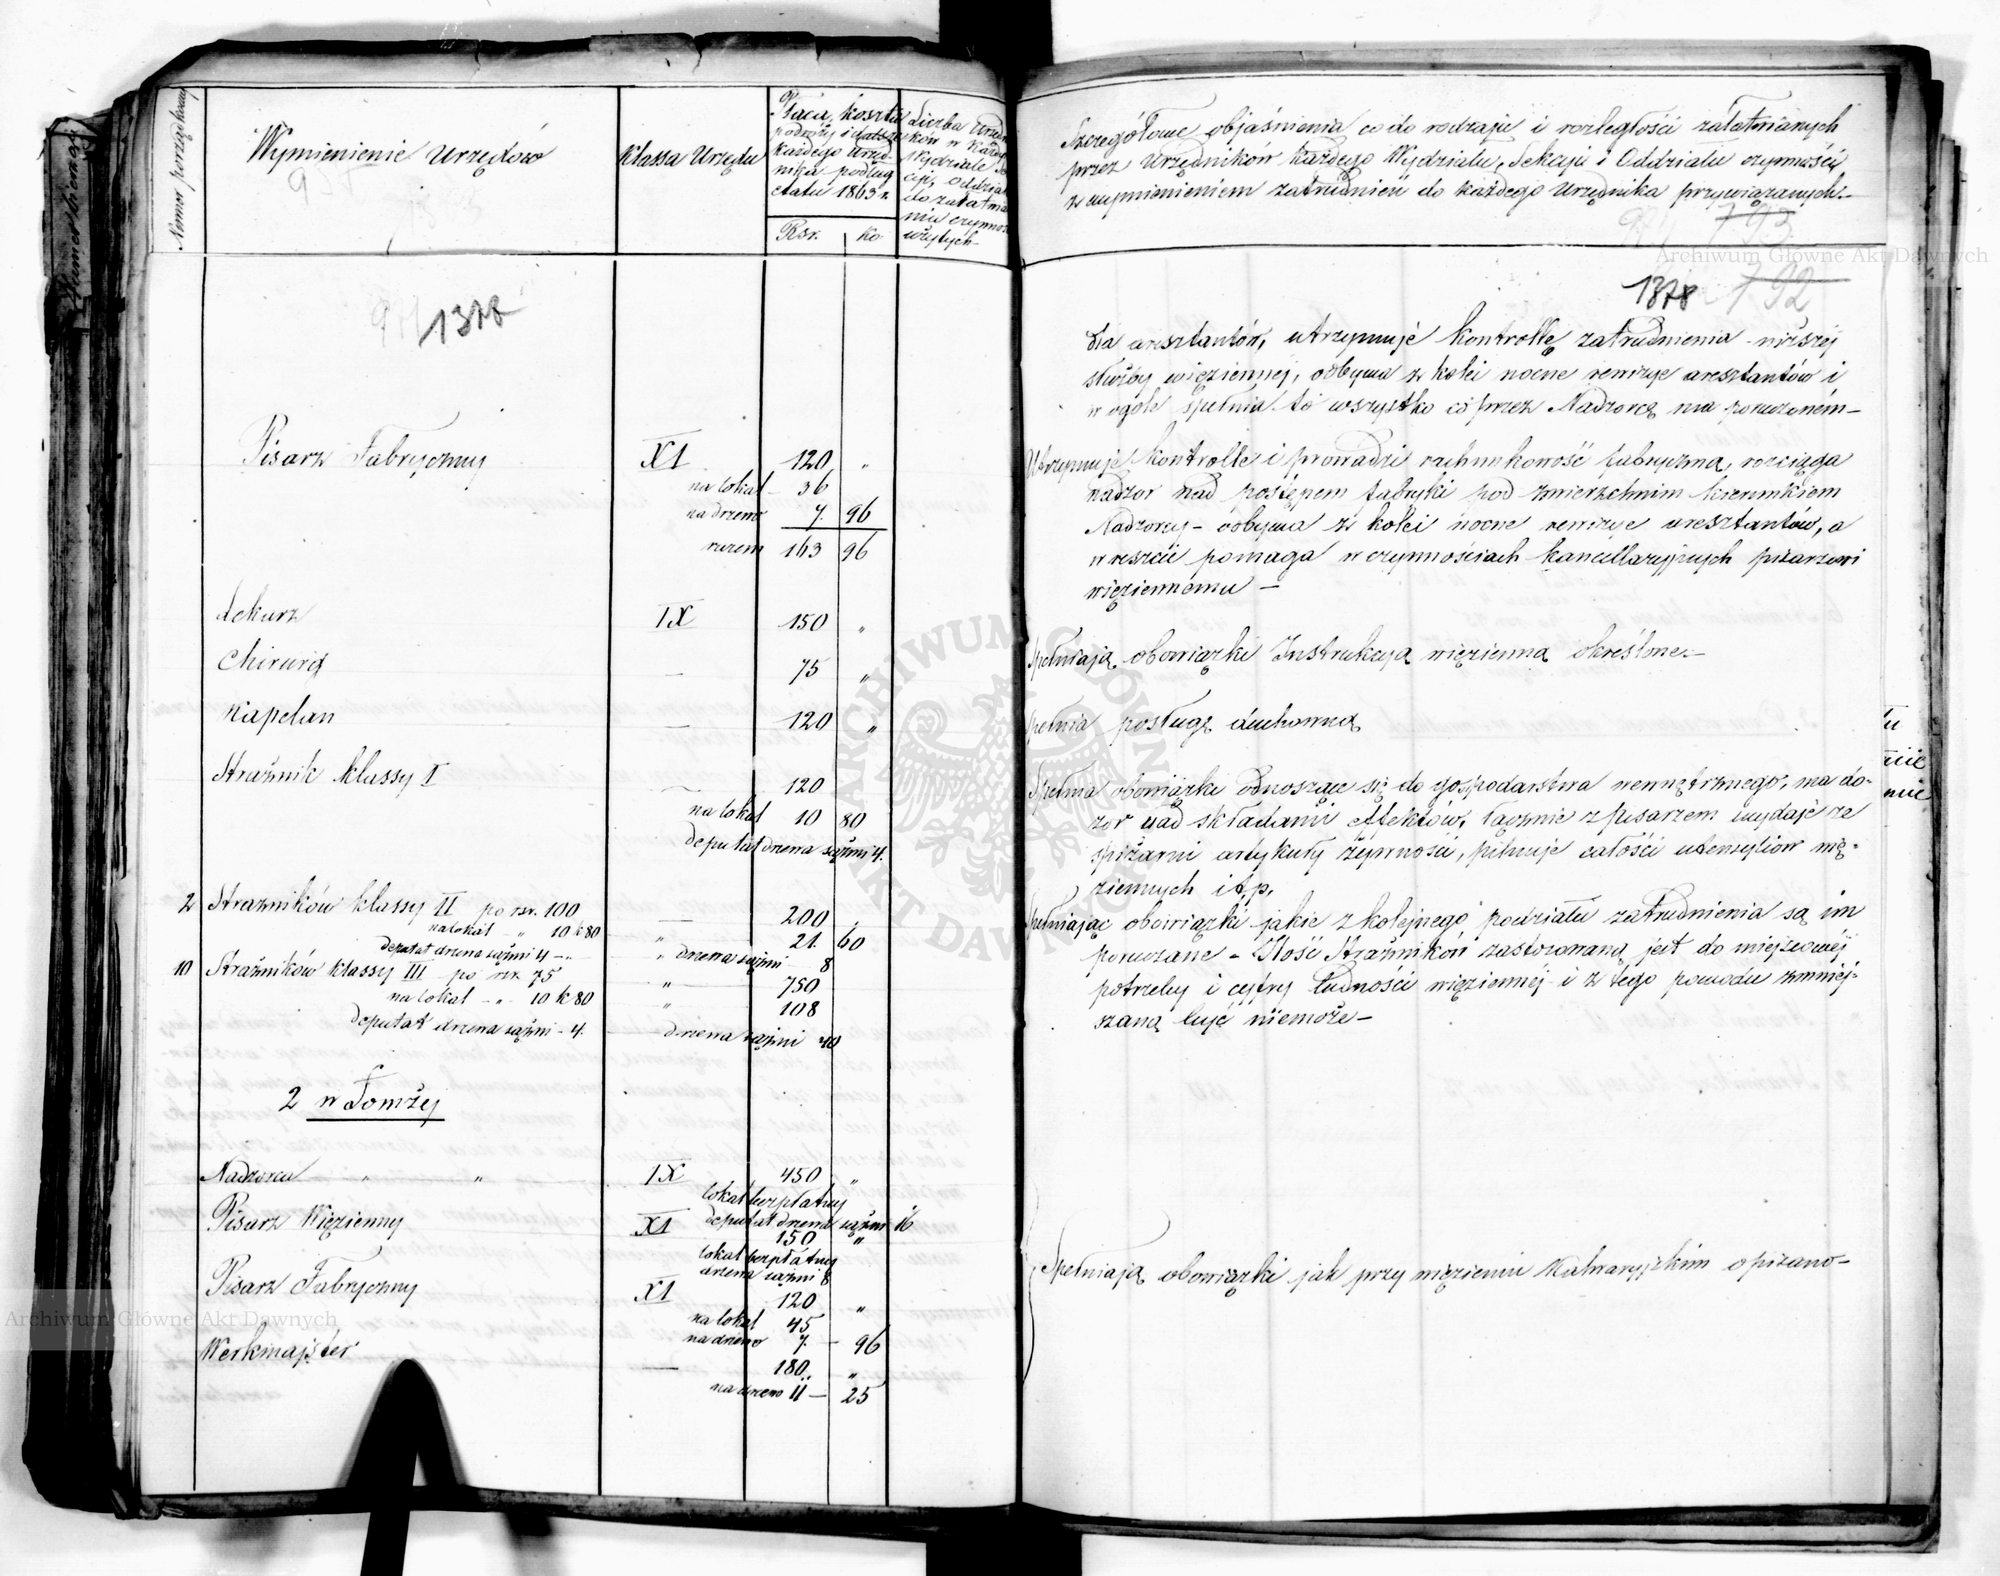 Numer porządkowy
Wymienienie Urzędów
Klassa Urzędu
Płaca, koszta
podróży i dalsze
każdego Urzęd-
nika podług
etatu 1863 r.
Rsr. ko
Liczba Urzędni
ków w każdym
Wydziale Sek
cji, Oddziale
do załatwia
nia czynności
użytych
1378
Pisarz Fabryczny XI 120 "
na lokal 36
na drzewo 7. 96
razem 163 96
Lekarz IX 150 "
Chirurg — 75 "
Kapelan — 120 "
Strażnik klassy I — 120
na lokal 10 80
deputat drzewa sążni 4.
2 Strażników klassy II po rsr. 100 — 200 "
na lokal - " 10 k 80 " 21. 60
deputat drzewa sążni 4 - " " drzewa sążni 8
10 Strażników klassy III - po rsr. 75 " 750
na lokal - " - 10 k 80 " 108
deputat drzewa sążni - 4. — drzewa sążni 40
2 w Łomży
Nadzorca " " IX 450 "
lokal bezpłatny
deputat drzewa sążni 16
Pisarz Więzienny XI 150 "
lokal bezpłatny
drzewa sążni 8
Pisarz Fabryczny XI 120 "
na lokal 45
na drzewo 7. — 96
Werkmajster — 180. "
na drzewo 11 — 25
Szczegółowe objaśnienia co do rodzaju i rozległości załatwianych
przez Urzędników każdego Wydziału, Sekcji i Oddziału czynności
z wymienieniem zatrudnień do każdego Urzędnika przywiązanych.—
793
1378 792
dla aresztantów, utrzymuje kontrollę zatrudnienia niższej
służby więziennej, odbywa z kolei nocne rewizye aresztantów i
w ogóle spełnia to wszystko co przez Nadzorcę ma poruczoném—
Utrzymuje kontrolle i prowadzi rachunkowość fabryczną, rozciąga
nadzor nad postępem fabryki pod zwierzchnim kierunkiem
Nadzorcy - odbywa z kolei nocne rewizye aresztantów, a
wreszcie pomaga w czynnościach kancellaryjnych pisarzowi
więziennemu —
Spełniają obowiązki Instrukcją więzienną określone.—
Spełnia posługę duchowną
Spełnia obowiązki odnoszące się do gospodarstwa wewnętrznego, ma do-
zor nad składami effektów, łącznie z pisarzem wydaje ze
spiżarni artykuły żywności, pilnuje całości utensyliow wię-
ziennych i t.p.
Spełniając obowiązki jakie z kolejnego podziału zatrudnienia są im
poruczane - Ilość Strażników zastosowaną jest do miejscowéj
potrzeby i cyfry ludności więziennéj i z tego powodu zmniej-
szaną być niemoże —
Spełniają obowiązki jak przy więzieniu Kalwaryjskim opisano —
Archiwum Główne Akt Dawnych
Archiwum Główne Akt Dawnych
ARCHIWUM GŁÓWNE AKT DAWNYCH